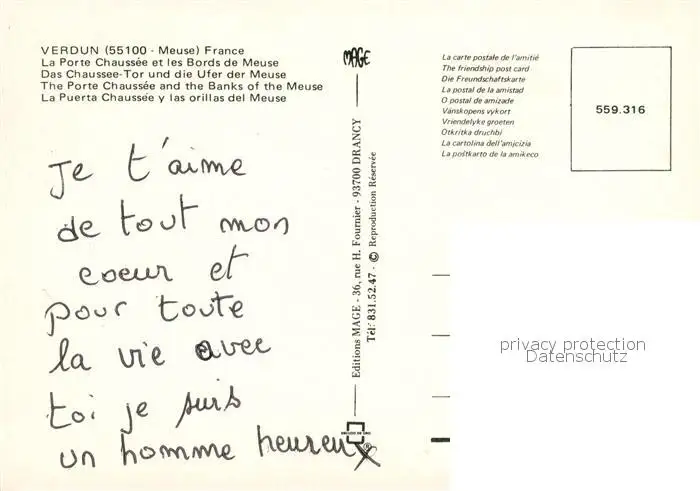 VERDUN (55100 - Meuse) France
La Porte Chaussée et les Bords de Meuse
Das Chaussee-Tor und die Ufer der Meuse
The Porte Chaussée and the Banks of the Meuse
La Puerta Chaussée y las orillas del Meuse
Je t'aime
de tout mon
coeur et
pour toute
la vie avec
toi je suis
un homme heureux
MAGE
Editions MAGE - 36, rue H. Fournier - 93700 DRANCY
Tél: 831.52.47 - © Reproduction Réservée
®
La carte postale de l'amitié
The friendship post card
Die Freundschaftskarte
La postal de la amistad
O postal de amizade
Vänskopens vykort
Vriendelyke groeten
Otkritka druchbi
La cartolina dell'amicizia
La poŝtkarto de la amikeco
559.316
privacy protection
Datenschutz